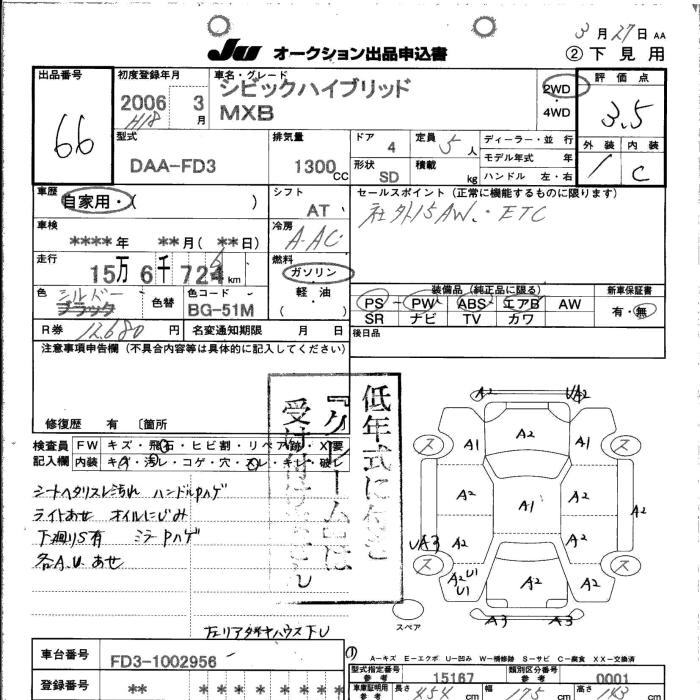 3月27日 AA
JU オークション出品申込書
② 下見用
出品番号
66
初度登録年月
2006 3月
H18
車名・グレード
シビックハイブリッド
MXB
2WD
4WD
評価点
3.5
外装 内装
1 C
型式
DAA-FD3
排気量
1300CC
ドア 4
形状 SD
定員 5人
積載 kg
ディーラー・並行
モデル年式 年
ハンドル 左・右
車歴
自家用・( )
シフト
AT
セールスポイント(正常に機能するものに限ります)
社外15AW.・ETC
車検
****年 **月(**日)
冷房
A-AC
走行
15万6千72 km
燃料
ガソリン
軽・油
( )
色
シルバー
ブラック
色替
色コード
BG-51M
装備品(純正品に限る)
PS PW ABS エアB AW
SR ナビ TV カワ
新車保証書
有・無
R券 12,680円
名変通知期限 月 日
後日品
注意事項申告欄(不具合内容等は具体的に記入してください)
修復歴 有 〔箇所
検査員記入欄
FW キズ・飛石・ヒビ割・リペア跡・X要
内装 キズ・汚レ・コゲ・穴・スレ・キレ・破レ
シートヘタリスレ汚れ ハンドルPハゲ
ライトあせ オイルにじみ
下廻りS有 ミラーPハゲ
各A.U.あせ
左リアタイヤハウスドU
低年式に付き
『クレーム』は
受け付けません
A2 UA2
ス A1 A2 A1 ス
A2 A1 A2 A2
UA3 A2 A2
ス A2 U1 U1 A2 A2 ス
A3 A3
スペア
車台番号
FD3-1002956
登録番号
** * * * * * * *
①
A-キズ E-エクボ U-凹み W-補修跡 S-サビ C-腐食 XX-交換済
型式指定番号 参考 15167
類別区分番号 参考 0001
車庫証明用 参考
長さ 454 cm 幅 175 cm 高さ 143 cm